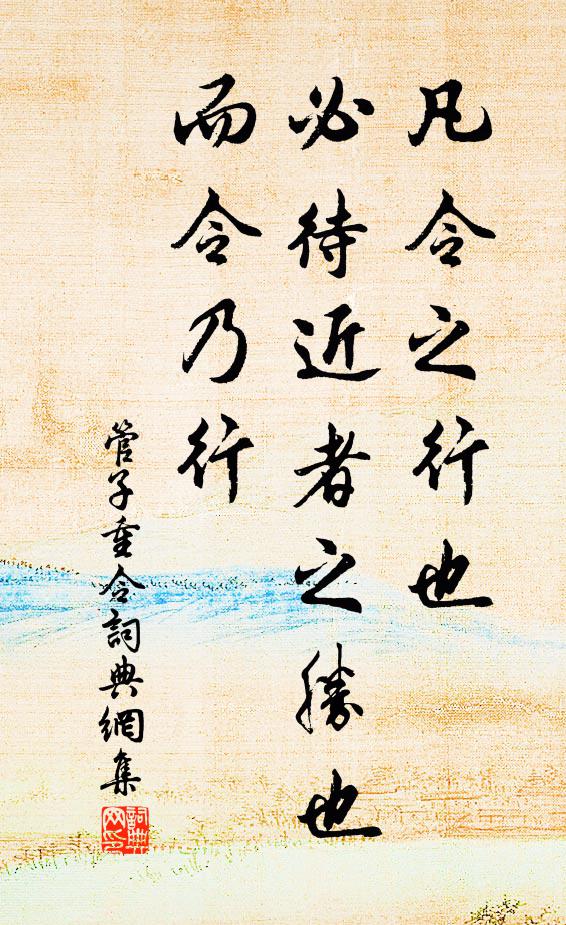 凡令之行也
必待近者之勝也
而令乃行
管子重令詞典網集
詞典
网印